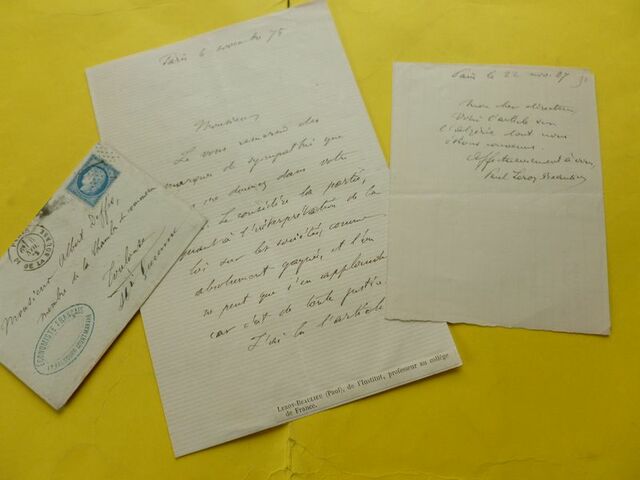 Paris 6 novembre 78
Monsieur,
Je vous remercie des
marques de sympathie que
donnez dans votre
Je considère la partie,
quant à l'interprétation de la
loi sur les sociétés, comme
absolument gagnée, et l'on
ne peut que s'en applaudir
car c'est de toute justice
J'ai lu l'article
LEROY-BEAULIEU (Paul), de l'Institut, professeur au collège
de France.
Paris le 22 nov. 87
Mon cher directeur
Voici l'article sur
l'Algérie dont nous
étions convenus.
Affectueusement à vous,
Paul Leroy-Beaulieu
Monsieur Albert
membre de la Chambre de commerce
Toulouse
Hte Garonne
ECONOMISTE FRANÇAIS